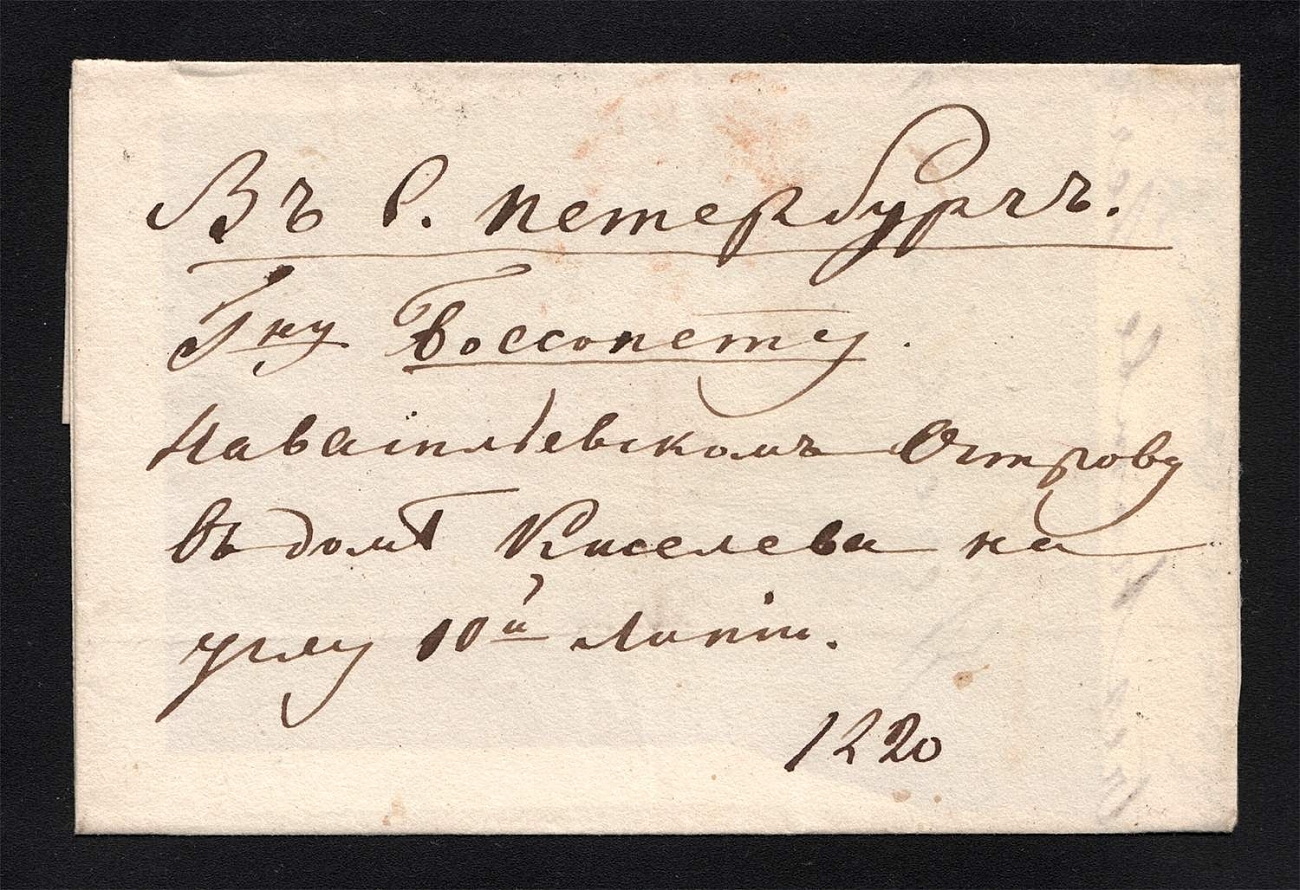 Въ С. Петербургъ.
Гну Боссопету.
На Васильевскомъ Острову
въ домѣ Киселева на
углу 10й Линіи.
1220